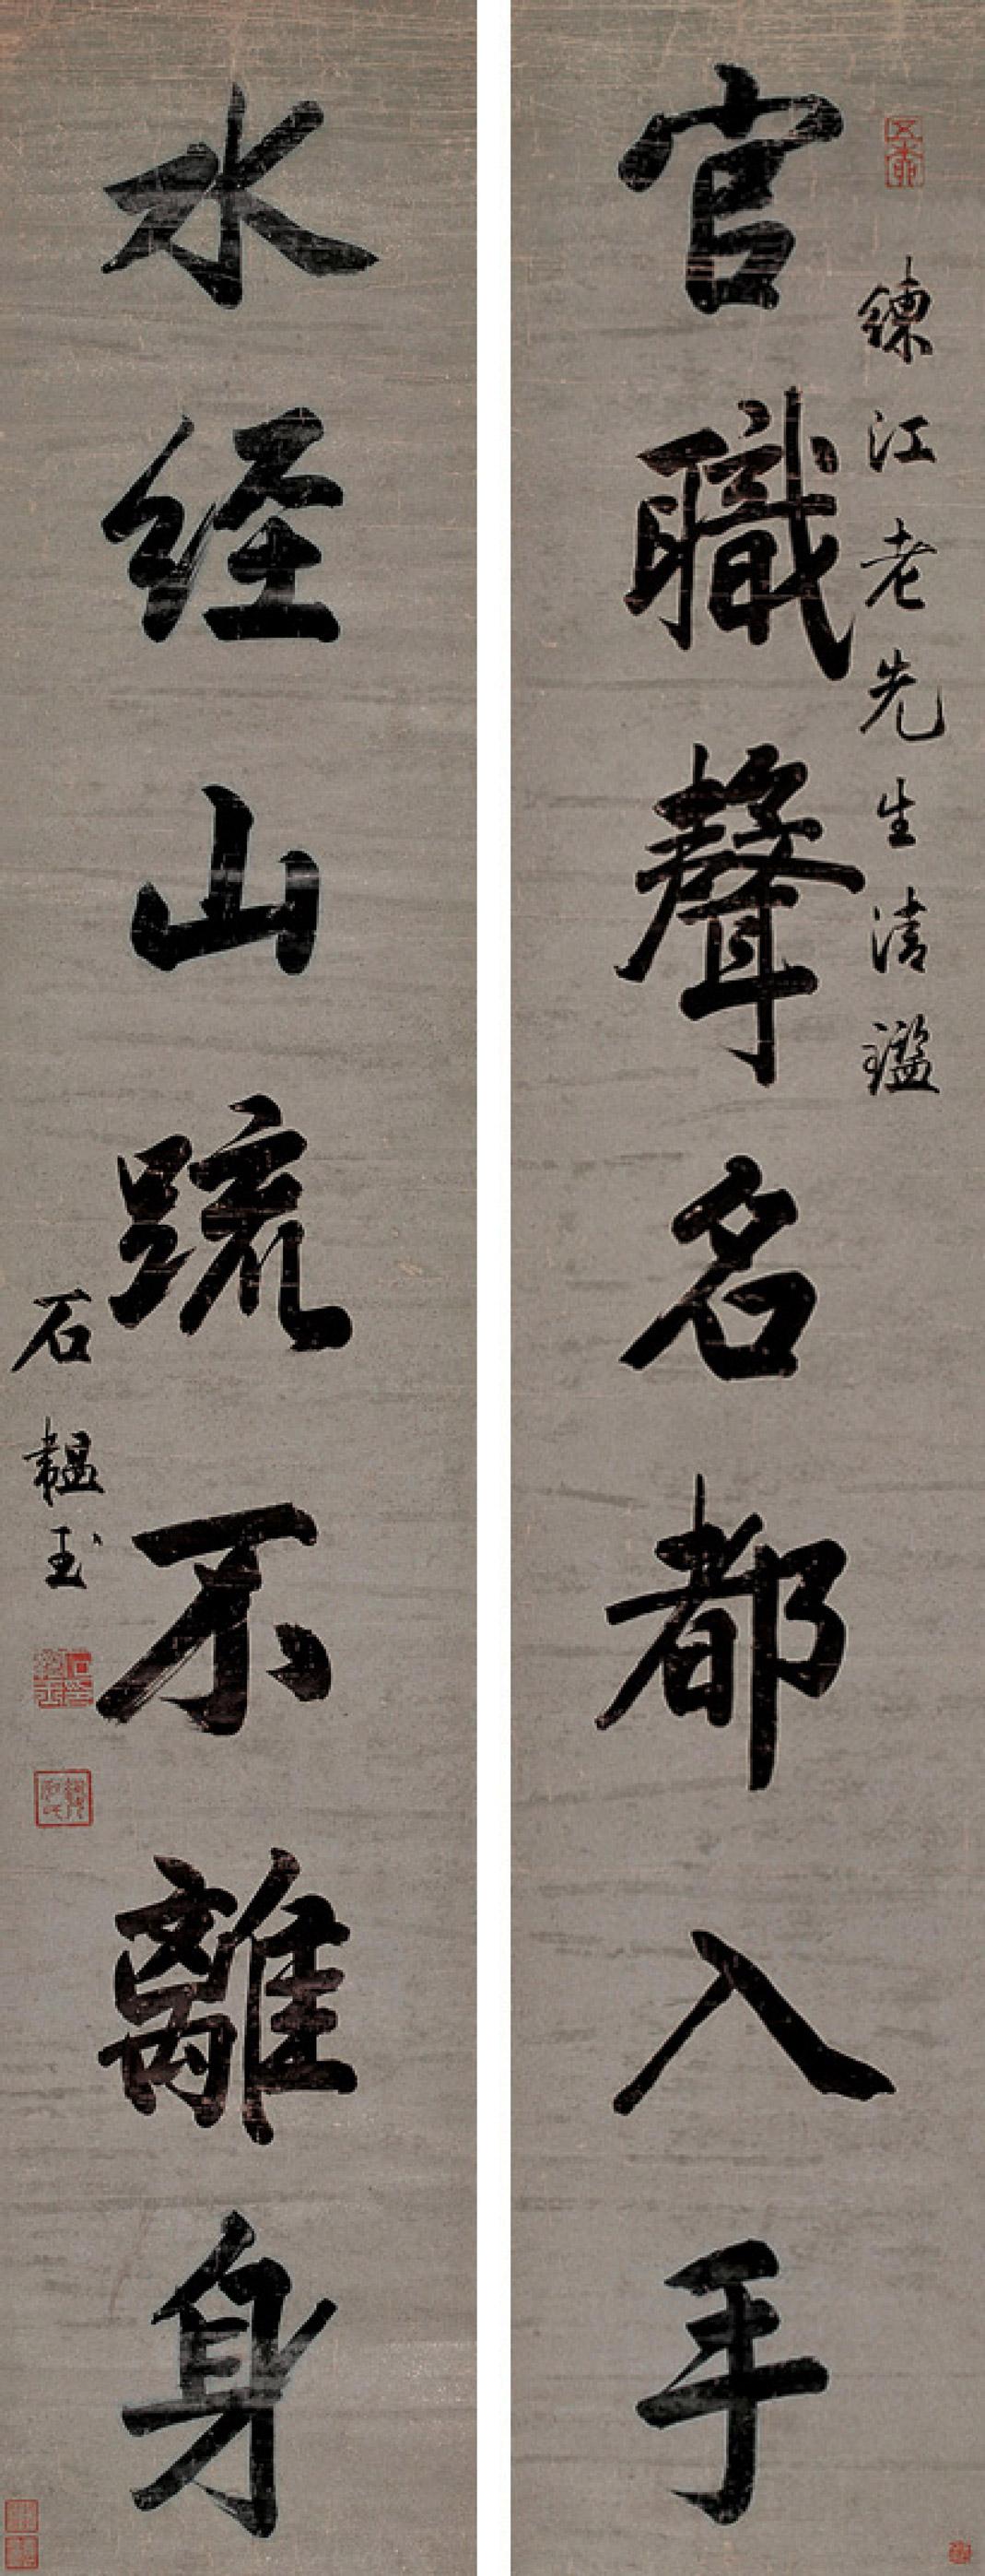 練江老先生清鑑
官職聲名都入手
水经山疏不離身
石韞玉